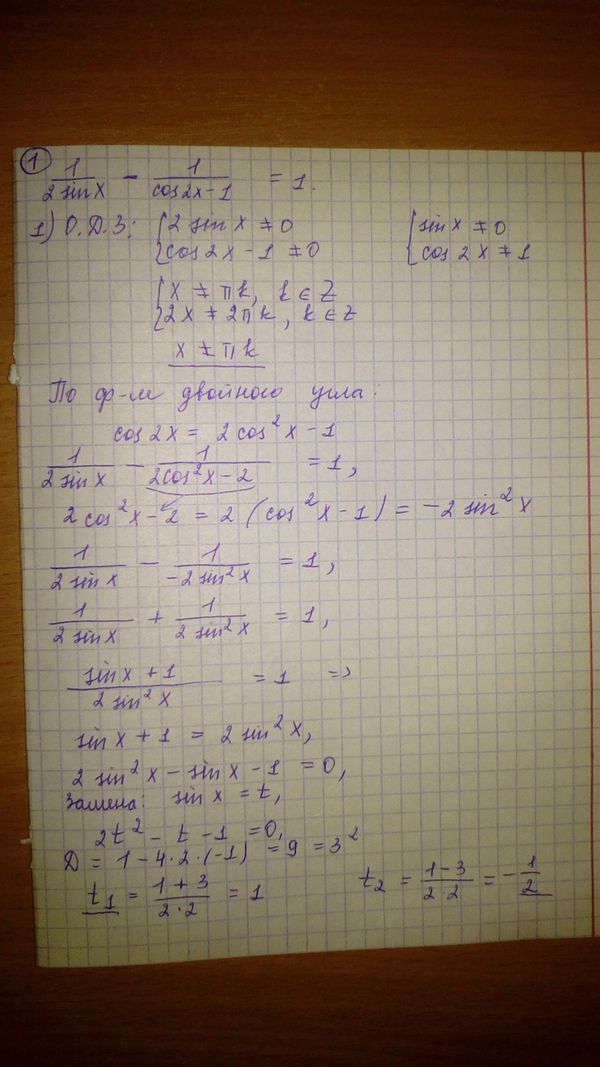 ① 1/(2 sin x) − 1/(cos 2x − 1) = 1.
1) О.Д.З: { 2 sin x ≠ 0 { sin x ≠ 0
{ cos 2x − 1 ≠ 0 { cos 2x ≠ 1
{ x ≠ πk, k ∈ Z
{ 2x ≠ 2πk, k ∈ Z
x ≠ πk
По ф-ле двойного угла:
cos 2x = 2 cos² x − 1
1/(2 sin x) − 1/(2cos² x − 2) = 1,
2 cos² x − 2 = 2 (cos² x − 1) = −2 sin² x
1/(2 sin x) − 1/(−2 sin² x) = 1,
1/(2 sin x) + 1/(2 sin² x) = 1,
(sin x + 1)/(2 sin² x) = 1 =>
sin x + 1 = 2 sin² x,
2 sin² x − sin x − 1 = 0,
Замена: sin x = t,
2t² − t − 1 = 0,
D = 1 − 4·2·(−1) = 9 = 3²
t₁ = (1 + 3)/(2·2) = 1 t₂ = (1 − 3)/(2·2) = −1/2